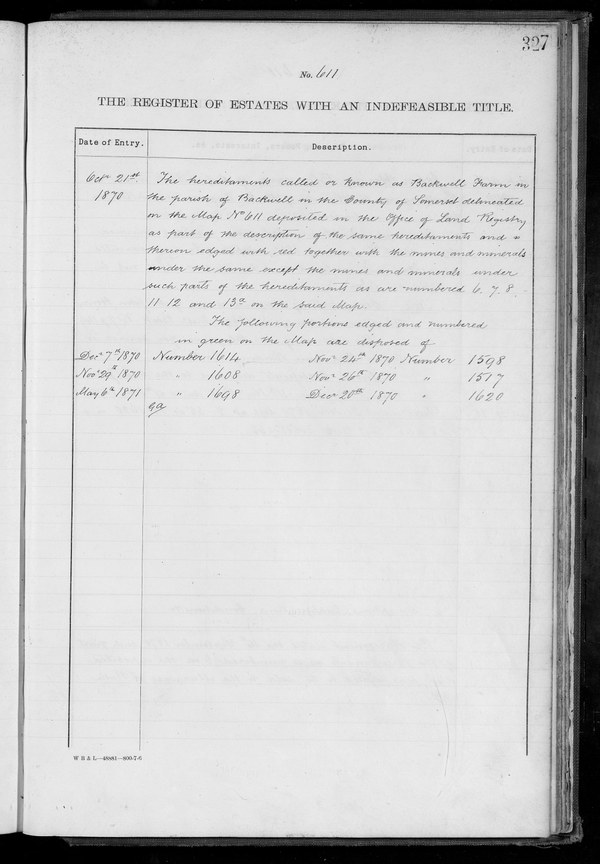 327
No. 611
THE REGISTER OF ESTATES WITH AN INDEFEASIBLE TITLE.
Date of Entry. Description.
Octr 21st. The hereditaments called or known as Backwell Farm in
1870 the parish of Backwell in the County of Somerset delineated
on the Map No 611 deposited in the Office of Land Registry
as part of the description of the same hereditaments and
thereon edged with red together with the mines and minerals
under the same except the mines and minerals under
such parts of the hereditaments as are numbered 6. 7. 8.
11 12 and 13a on the said Map.
The following portions edged and numbered
in green on the Map are disposed of
Decr 7th 1870 Number 1614 Novr 24th 1870 Number 1598
Novr 29th 1870 " 1608 Novr 26th 1870 " 1517
May 6th 1871 " 1698 Decr 20th 1870 " 1620
W B & L—48881—800-7-6